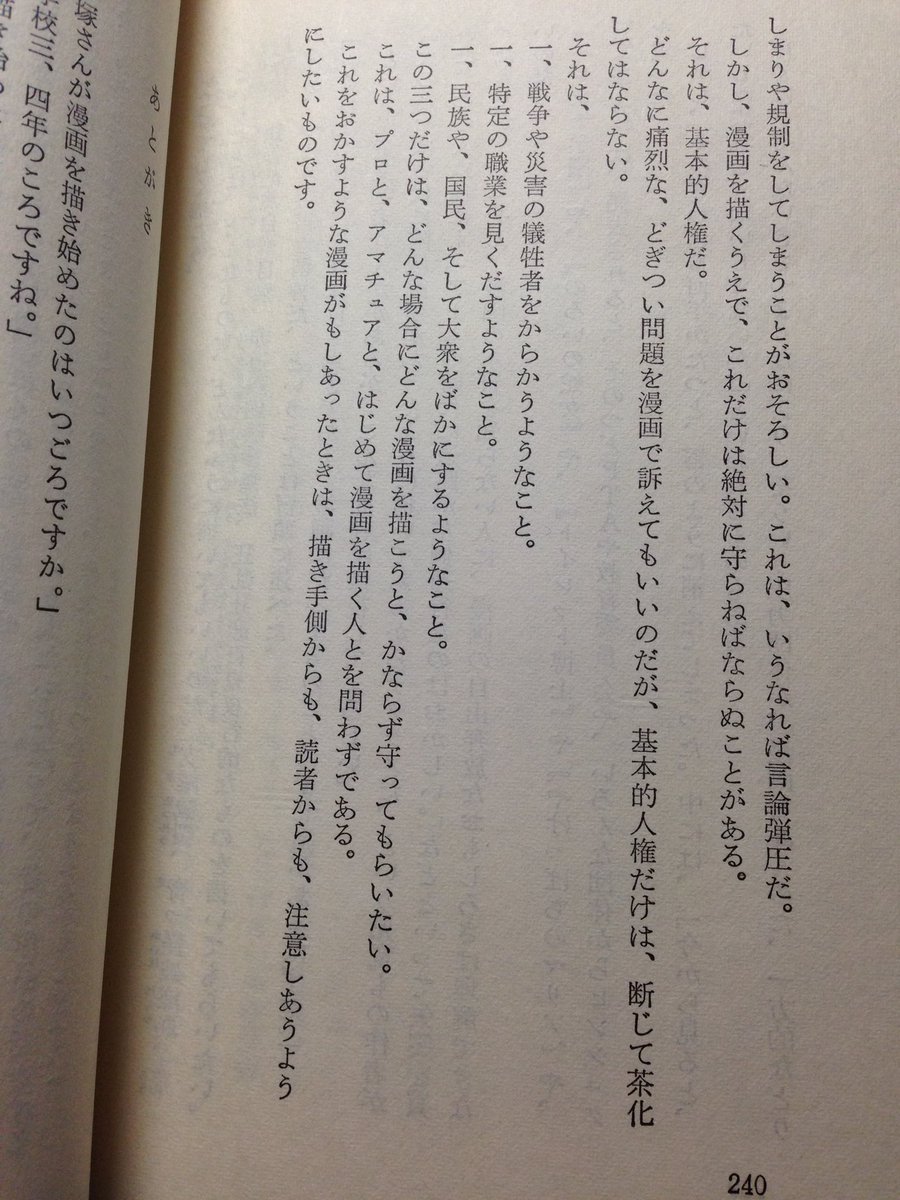 しまりや規制をしてしまうことがおそろしい。これは、いうなれば言論弾圧だ。
しかし、漫画を描くうえで、これだけは絶対に守らねばならぬことがある。
それは、基本的人権だ。
どんなに痛烈な、どぎつい問題を漫画で訴えてもいいのだが、基本的人権だけは、断じて茶化
してはならない。
それは、
一、戦争や災害の犠牲者をからかうようなこと。
一、特定の職業を見くだすようなこと。
一、民族や、国民、そして大衆をばかにするようなこと。
この三つだけは、どんな場合にどんな漫画を描こうと、かならず守ってもらいたい。
これは、プロと、アマチュアと、はじめて漫画を描く人とを問わずである。
これをおかすような漫画がもしあったときは、描き手側からも、読者からも、注意しあうよう
にしたいものです。
240
あとがき
塚さんが漫画を描き始めたのはいつごろですか。」
学校三、四年のころですね。」